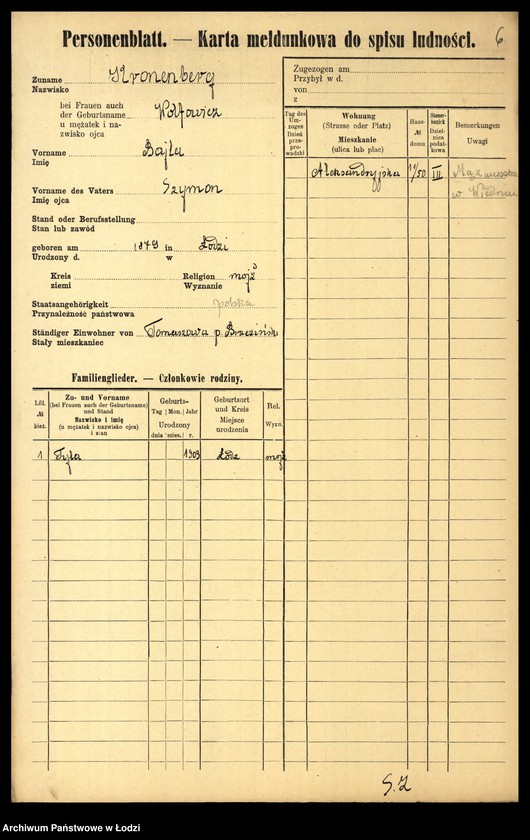 Personenblatt. — Karta meldunkowa do spisu ludności. 6
Zuname Kronenberg
Nazwisko
bei Frauen auch
der Geburtsname Wolfowicz
u mężatek i na-
zwisko ojca
Vorname Bajla
Imię
Vorname des Vaters Szymon
Imię ojca
Stand oder Berufsstellung
Stan lub zawód
geboren am 1879 in Łodzi
Urodzony d. w
Kreis Religion mojż
ziemi Wyznanie
Staatsangehörigkeit polska
Przynależność państwowa
Ständiger Einwohner von Tomaszowa p. Brzeziński
Stały mieszkaniec
Zugezogen am
Przybył w d.
von
z
Tag des Um-zuges Dzień prze-pro-wadzki
Wohnung (Strasse oder Platz) Mieszkanie (ulica lub plac)
Haus-№ domu
Steuer-bezirk Dziel-nica podat-kowa
Bemerkungen Uwagi
Aleksandryjska 11/50 III Mąż mieszka
w Wiedniu
Familienglieder. — Członkowie rodziny.
Lfd. № bież.
Zu- und Vorname (bei Frauen auch der Geburtsname) und Stand Nazwisko i imię (u mężatek i nazwisko ojca) i stan
Geburts- Tag Mon. Jahr Urodzony dnia mies. r.
Geburtsort und Kreis Miejsce urodzenia
Rel. Wyzn.
1 Tyla 1903 Łódź mojż
S. Z
Archiwum Państwowe w Łodzi